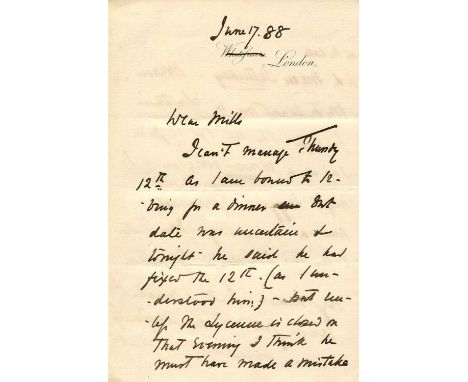 June 17. 88
London.
Dear Mills
I can't manage Thursday
12th as I am bound to Ir-
-ving for a dinner
date was uncertain &
tonight he said he had
fixed the 12th. (as I un-
-derstood him) - But un-
-less the Lyceum is closed on
that Evening I think he
must have made a mistake